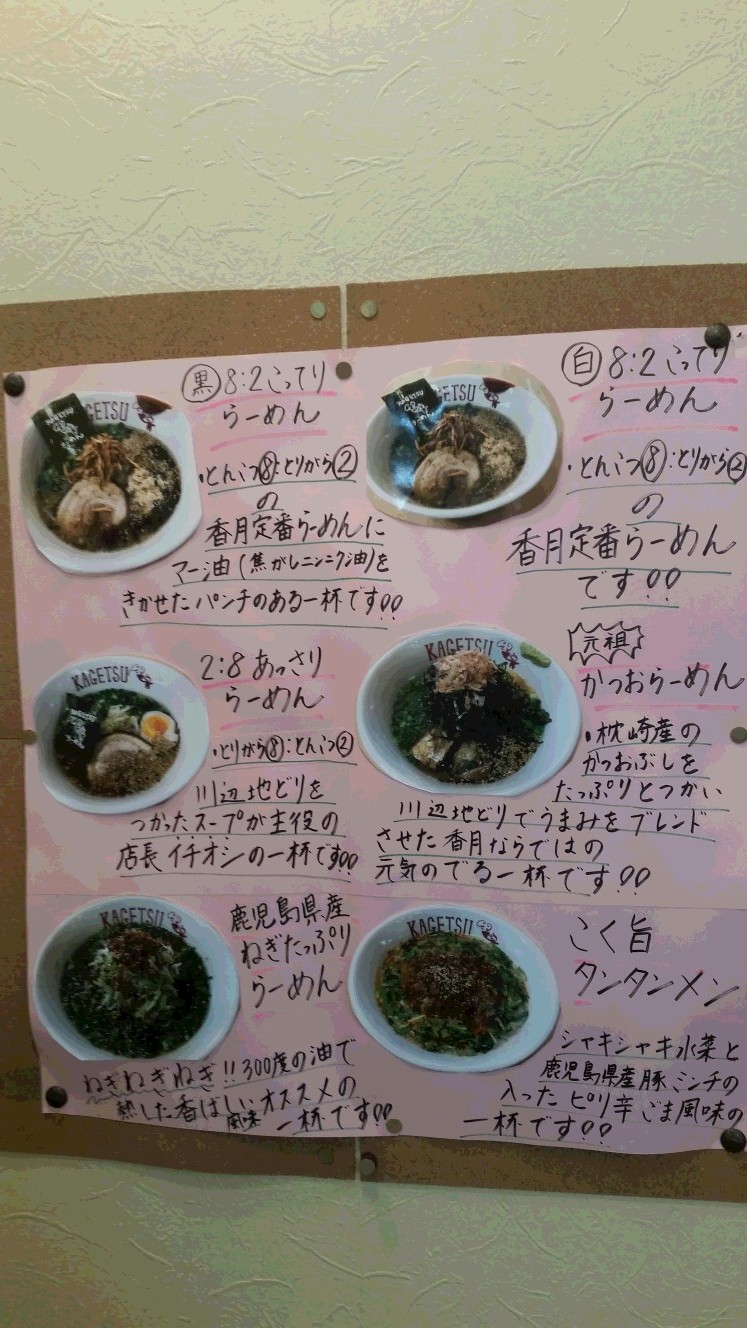 黒 8:2こってり
らーめん
・とんこつ⑧:とりがら②
の
香月定番らーめんに
マー油(焦がしニンニク油)を
きかせたパンチのある一杯です!!
KAGETSU
白 8:2こってり
らーめん
・とんこつ⑧:とりがら②
の
香月定番らーめん
です!!
KAGETSU
2:8あっさり
らーめん
・とりがら⑧:とんこつ②
川辺地どりを
つかったスープが主役の
店長イチオシの一杯です!!
KAGETSU
元祖
かつおらーめん
・枕崎産の
かつおぶしを
たっぷりとつかい
川辺地どりでうまみをブレンド
させた香月ならではの
元気のでる一杯です!!
KAGETSU
鹿児島県産
ねぎたっぷり
らーめん
ねぎねぎねぎ!!300度の油で
熱した香ばしいオススメの
風味 一杯です!!
KAGETSU
こく旨
タンタンメン
シャキシャキ水菜と
鹿児島県産豚ミンチの
入ったピリ辛ごま風味の
一杯です!!
KAGETSU